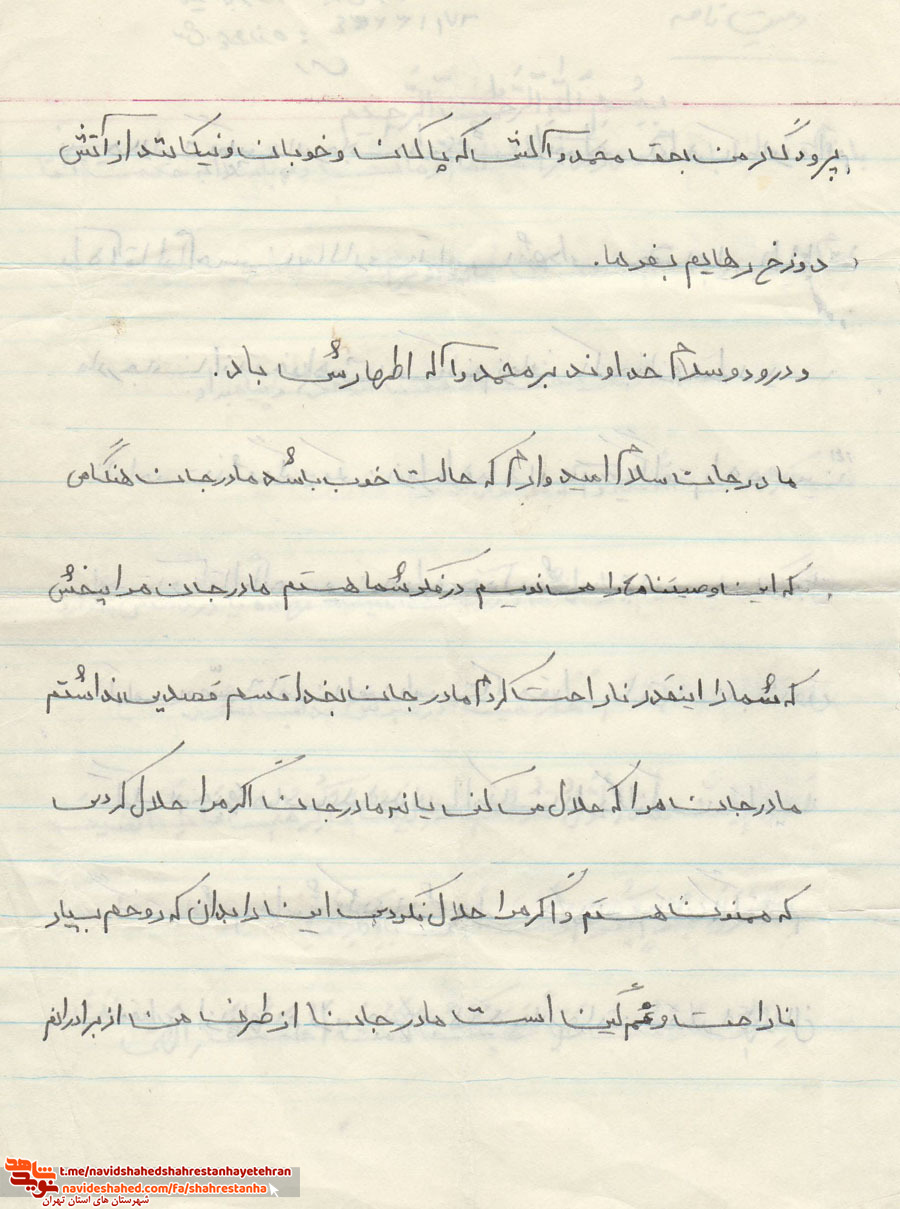 پروردگار من بحق محمد و آلش که پاکان و خوبان و نیکانند از آتش
دوزخ رهایم بفرما.
و درود و سلام خداوند بر محمد و آله اطهارش باد.
مادر جان سلام امیدوارم که حالت خوب باشد مادر جان هنگامی
که این وصیتنامه را می نویسم در فکر شما هستم مادر جان مرا ببخش
که شما را اینقدر ناراحت کردم مادر جان بخدا قسم قصدی نداشتم
مادر جان مرا که حلال می کنی یا نه مادر جان اگر مرا حلال کردی
که ممنونت هستم و اگر مرا حلال نکردی این را بدان که روحم بسیار
ناراحت و غمگین است مادر جان از طرف من از برادرانم
t.me/navidshahedshahrestanhayetehran
navideshahed.com/fa/shahrestanha
شهرستان های استان تهران
نوید شاهد